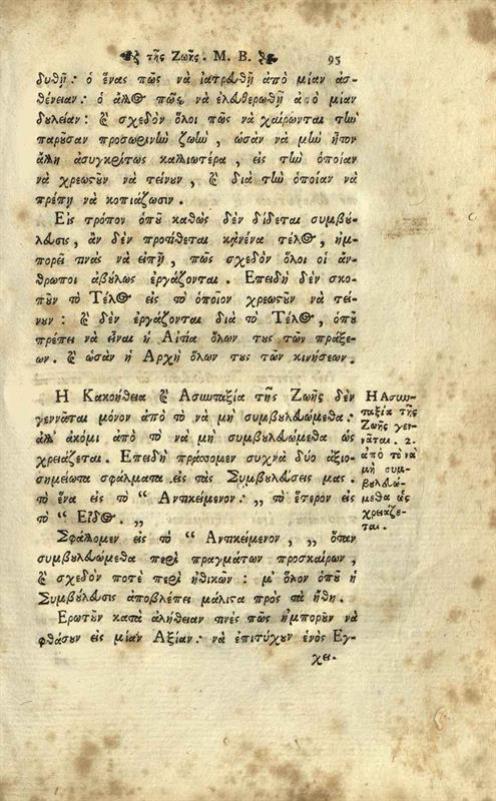 τῆς Ζωῆς. Μ. Β. 95
δυθῇ: ὁ ἕνας πῶς νὰ ἰατρευθῇ ἀπὸ μίαν ἀσ-
θένειαν: ὁ ἄλλος πῶς νὰ ἐλευθερωθῇ ἀπὸ μίαν
δουλείαν: καὶ σχεδὸν ὅλοι πῶς νὰ χαίρωνται τὴν
παροῦσαν προσωρινὴν ζωὴν, ὡσὰν νὰ μὴν ἦτον
ἄλλη ἀσυγκρίτως καλλιωτέρα, εἰς τὴν ὁποίαν
νὰ χρεωστοῦν νὰ τείνουν, καὶ διὰ τὴν ὁποίαν νὰ
πρέπῃ νὰ κοπιάζωσιν.
Εἰς τρόπον ὁποῦ καθὼς δὲν δίδεται συμβού-
λευσις, ἂν δὲν προτίθεται κανένα τέλος, ἠμ-
πορεῖ τινὰς νὰ εἰπῇ, πῶς σχεδὸν ὅλοι οἱ ἄν-
θρωποι ἀβούλως ἐργάζονται. Ἐπειδὴ δὲν σκο-
ποῦν τὸ Τέλος εἰς τὸ ὁποῖον χρεωστοῦν νὰ τεί-
νουν: καὶ δὲν ἐργάζονται διὰ τὸ Τέλος, ὁποῦ
πρέπει νὰ εἶναι ἡ Αἰτία ὅλων τους τῶν πράξε-
ων. καὶ ὡσὰν ἡ Ἀρχὴ ὅλων τους τῶν κινήσεων.
Η Κακοήθεια καὶ Ἀσυνταξία τῆς Ζωῆς δὲν
γεννᾶται μόνον ἀπὸ τὸ νὰ μὴ συμβουλευώμεθα:
ἀλλ' ἀκόμι ἀπὸ τὸ νὰ μὴ συμβουλευώμεθα ὡς
χρειάζεται. Ἐπειδὴ πράττομεν συχνὰ δύο ἀξιο-
σημείωτα σφάλματα εἰς τὰς Συμβουλεύσεις μας.
τὸ ἕνα εἰς τὸ “ Ἀντικείμενον: „ τὸ ἕτερον εἰς
τὸ “ Εἶδος. „
Σφάλλομεν εἰς τὸ “ Ἀντικείμενον, „ ὅταν
συμβουλευώμεθα περὶ πραγμάτων προσκαίρων,
καὶ σχεδὸν ποτὲ περὶ ἠθικῶν: μ' ὅλον ὁποῦ ἡ
Συμβούλευσις ἀποβλέπει μάλιστα πρὸς τὰ ἤθη.
Ἐρωτοῦν κατὰ ἀλήθειαν τινὲς πῶς ἠμποροῦν νὰ
φθάσουν εἰς μίαν Ἀξίαν: νὰ ἐπιτύχουν ἑνὸς Ἐγ-
χει-
Η Ἀσυν-
ταξία τῆς
Ζωῆς γεν-
νᾶται. 2.
ἀπὸ τὸ νὰ
μὴ συμ-
βουλευώ-
μεθα ὡς
χρειάζε-
ται.